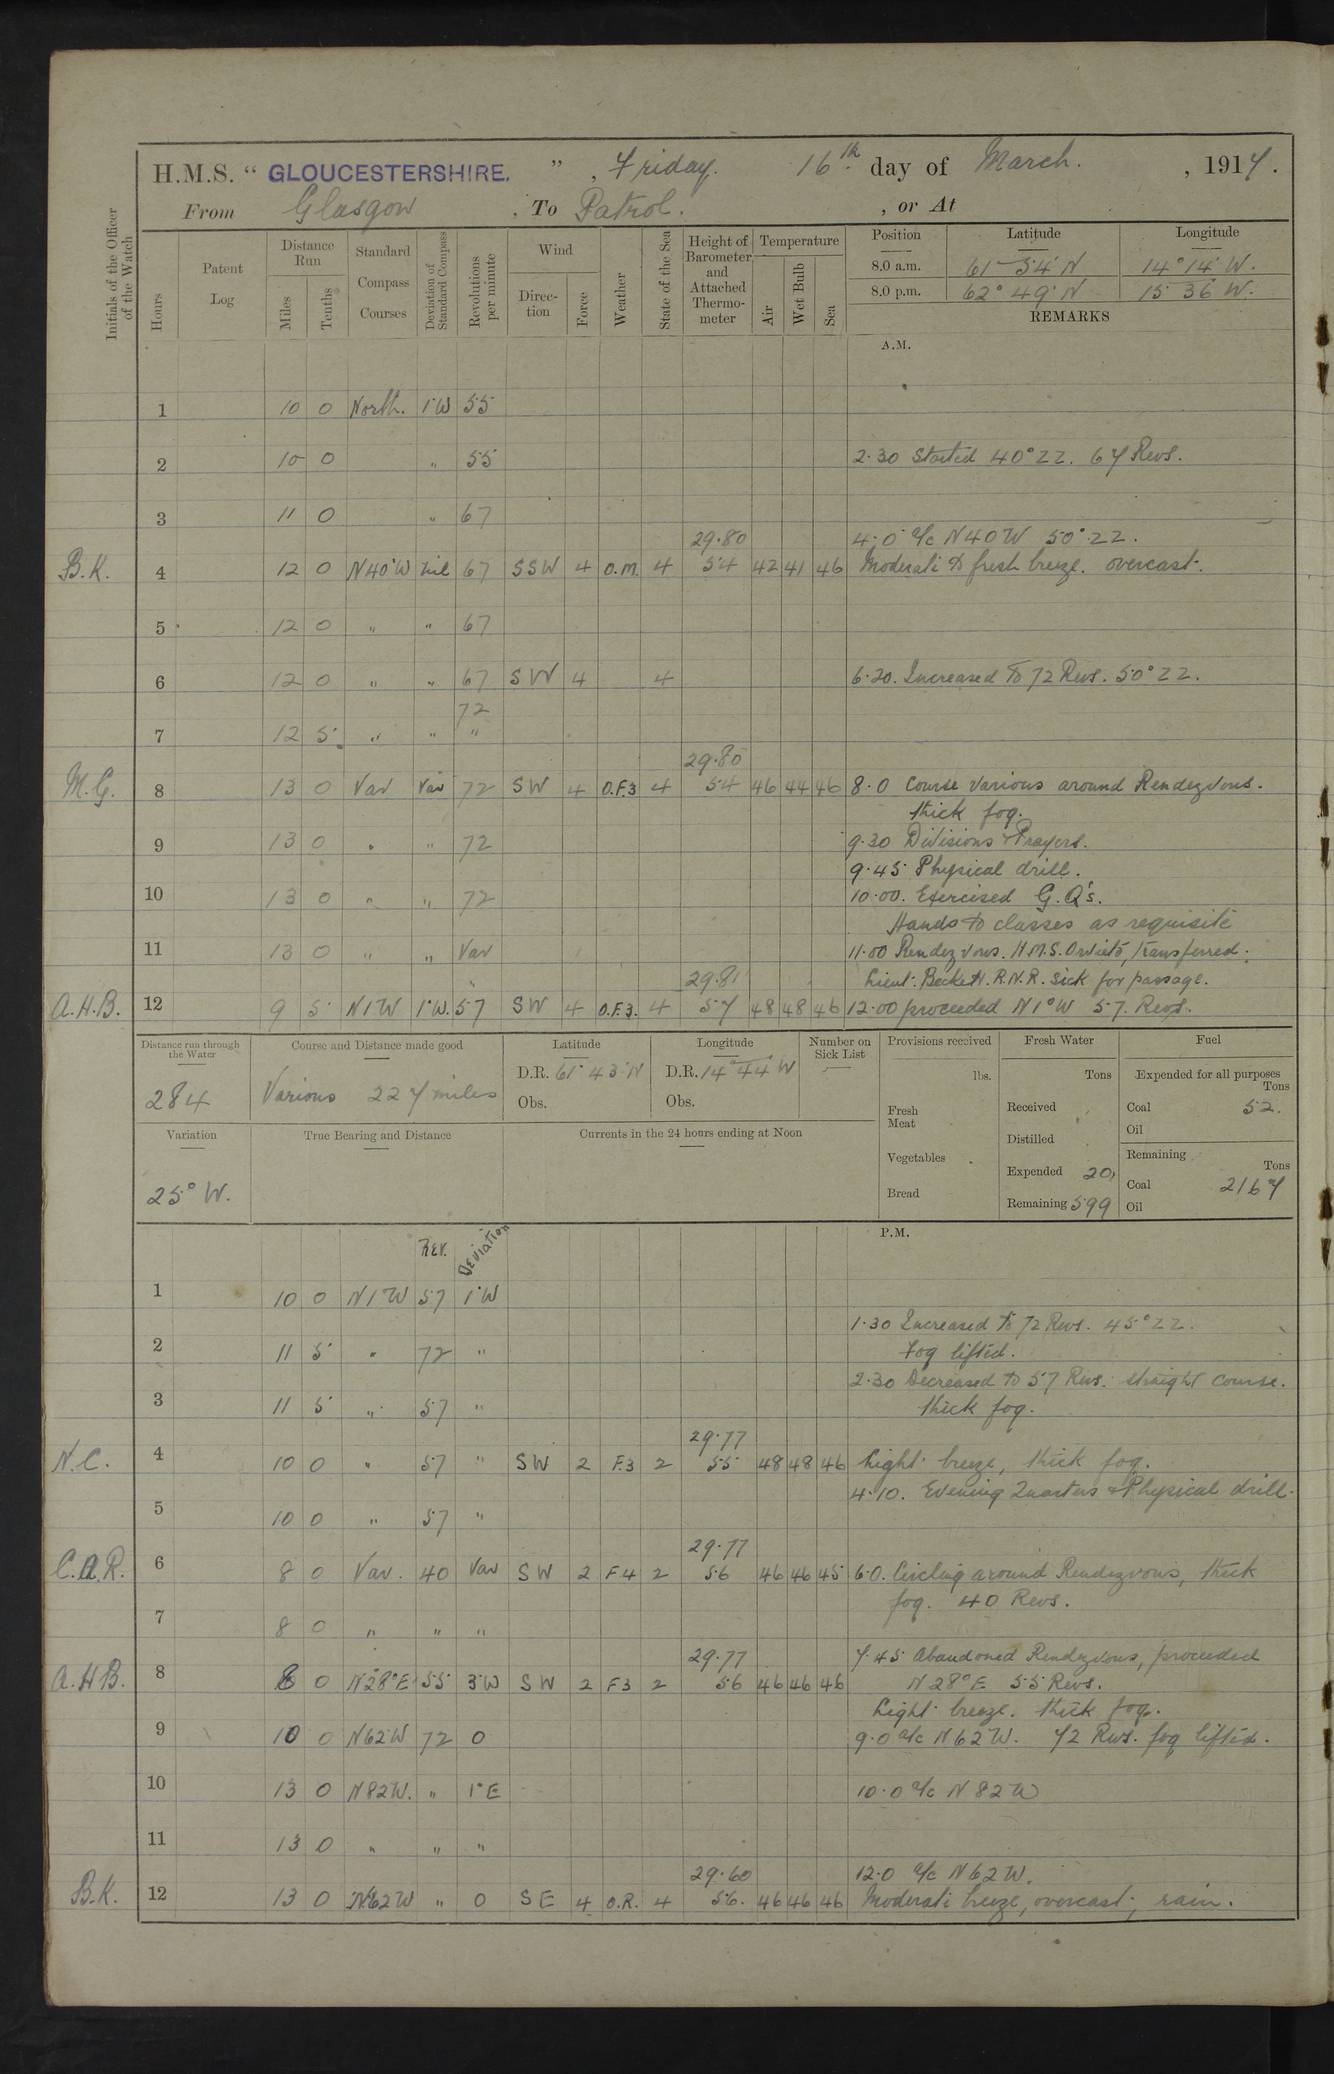 H.M.S. " GLOUCESTERSHIRE. ", Friday. 16th day of March. , 1917.
From Glasgow , To Patrol. , or At
Initials of the Officer of the Watch
Hours
Patent Log
Distance Run
Miles
Tenths
Standard Compass Courses
Deviation of Standard Compass
Revolutions per minute
Wind
Direction
Force
Weather
State of the Sea
Height of Barometer and Attached Thermometer
Temperature
Air
Wet Bulb
Sea
Position Latitude Longitude
8.0 a.m. 61° 54' N 14° 14' W.
8.0 p.m. 62° 49' N 15 36 W.
REMARKS
A.M.
1 10 0 North. 1°W 55
2 10 0 " 55 2.30 Started 40° ZZ. 67 Revs.
3 11 0 " 67
29.80 4.0 a/c N40W 50° ZZ.
B.K. 4 12 0 N40°W nil 67 SSW 4 O.M. 4 54 42 41 46 Moderate to fresh breeze. overcast.
5 12 0 " " 67
6 12 0 " " 67 SW 4 4 6.20. Increased to 72 Revs. 50° ZZ.
72
7 12 5 " " "
29.80
M.G. 8 13 0 Var Var 72 SW 4 O.F.3 4 54 46 44 46 8.0 Course various around Rendezvous.
thick fog.
9 13 0 " " 72 9.30 Divisions & Prayers.
9.45 Physical drill.
10 13 0 " " 72 10.00. Exercised G.Q's.
Hands to classes as requisite
11 13 0 " " Var 11.00 Rendezvous. H.M.S. Orvieto, transferred
29.81 Lieut. Beckett. R.N.R. sick for passage.
A.H.B. 12 9 5 N1W 1°W. 57 SW 4 O.F.3. 4 57 48 48 46 12.00 proceeded N1°W 57. Revs.
Distance run through the Water
284
Course and Distance made good
Various 227 miles
Latitude
D.R. 61° 43' N
Obs.
Longitude
D.R. 14° 44' W
Obs.
Number on Sick List
Provisions received
lbs.
Fresh Meat
Vegetables
Bread
Fresh Water
Tons
Received
Distilled
Expended 20
Remaining 599
Fuel
Expended for all purposes
Tons
Coal 52.
Oil
Remaining
Tons
Coal 2167
Oil
Variation
25° W.
True Bearing and Distance
Currents in the 24 hours ending at Noon
P.M.
Rev. Deviation
1 10 0 N1W 57 1°W
1.30 Increased to 72 Revs. 45° ZZ.
2 11 5 " 72 " Fog lifted.
2.30 Decreased to 57 Revs. straight course.
3 11 5 " 57 " thick fog.
29.77
N.C. 4 10 0 " 57 " SW 2 F.3 2 55 48 48 46 Light breeze, thick fog.
4.10. Evening Quarters & Physical drill.
5 10 0 " 57 "
29.77
C.A.R. 6 8 0 Var. 40 Var SW 2 F4 2 56 46 46 45 6.0. Circling around Rendezvous, thick
fog. 40 Revs.
7 8 0 " " "
29.77 7.45 Abandoned Rendezvous, proceeded
A.H.B. 8 8 0 N28°E 55 3°W SW 2 F3 2 56 46 46 46 N28°E 55 Revs.
Light breeze. thick fog.
9 10 0 N62W 72 0 9.0 a/c N62W. 72 Revs. fog lifted.
10 13 0 N82W. " 1°E 10.0 a/c N82W
11 13 0 " " "
29.60 12.0 a/c N62W.
B.K. 12 13 0 N62W " 0 SE 4 O.R. 4 56. 46 46 46 Moderate breeze, overcast, rain.